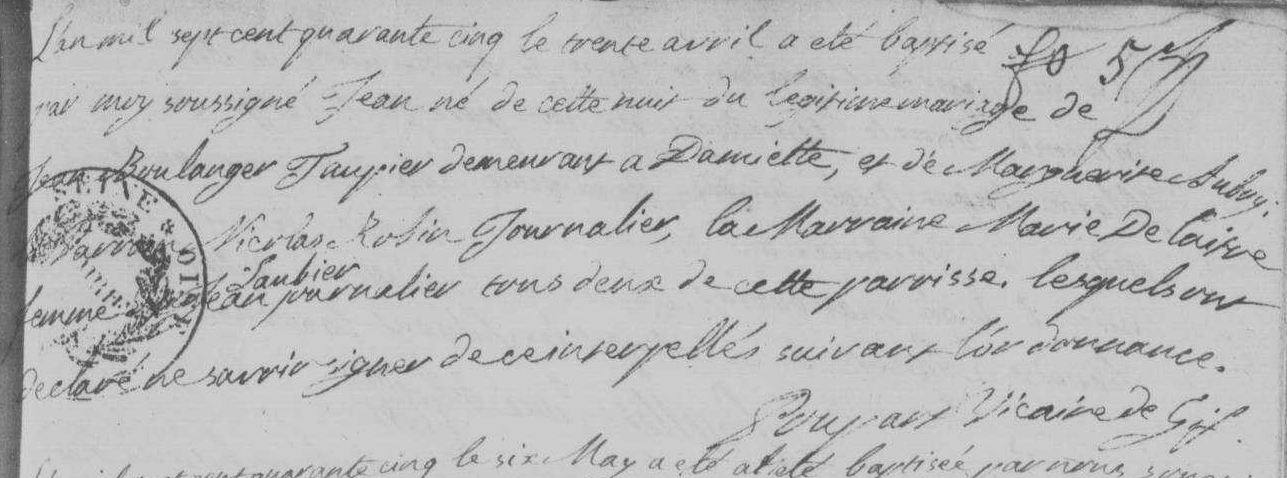 L'an mil sept cent quarante cinq le trente avril a eté baptisé
par moy soussigné Jean né de cette nuit du legitime mariage de
Jean Boulanger Taupier demeurant a Damiette, et de Marguerite Aubry.
Parrain Nicolas Robin Journalier, la Marraine Marie De laitre
femme de Jean Laubier journalier tous deux de cette parroisse. lesquels ont
declaré ne savoir signer de ce interpellés suivant l'ordonnance.
Poupart Vicaire de Gif.
L'an mil sept cent quarante cinq le six May a eté baptisée par nous